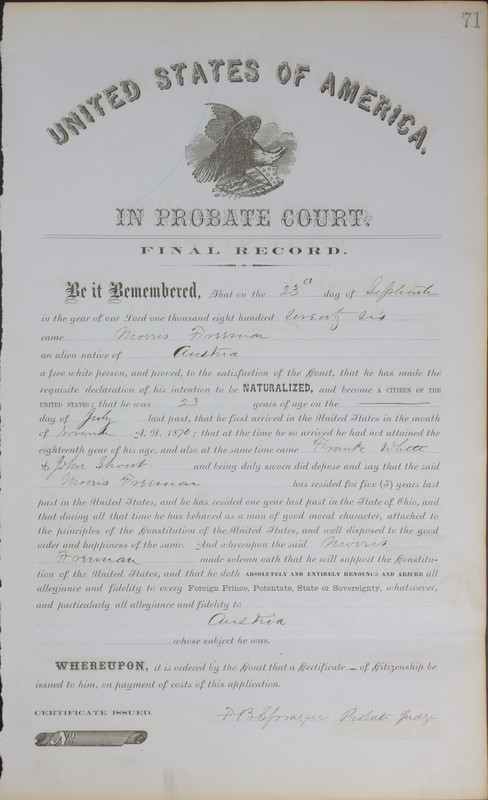 71
UNITED STATES OF AMERICA.
IN PROBATE COURT.
FINAL RECORD.
Be it Remembered, That on the 23d day of September
in the year of our Lord one thousand eight hundred seventy six
came Morris Freeman
an alien native of Austria
a free white person, and proved, to the satisfaction of the Court, that he has made the
requisite declaration of his intention to be NATURALIZED, and become A CITIZEN OF THE
UNITED STATES; that he was 23 years of age on the
day of July last past, that he first arrived in the United States in the month
of A. D. 1870; that at the time he so arrived he had not attained the
eighteenth year of his age, and also at the same time came Frank White
& John and being duly sworn did depose and say that the said
Morris Freeman has resided for five (5) years last
past in the United States, and he has resided one year last past in the State of Ohio, and
that during all that time he has behaved as a man of good moral character, attached to
the principles of the Constitution of the United States, and well disposed to the good
order and happiness of the same. And whereupon the said Morris
Freeman made solemn oath that he will support the Constitu-
tion of the United States, and that he doth ABSOLUTELY AND ENTIRELY RENOUNCE AND ABJURE all
allegiance and fidelity to every Foreign Prince, Potentate, State or Sovereignty, whatsoever,
and particularly all allegiance and fidelity to
Austria
whose subject he was.
WHEREUPON, it is ordered by the Court that a Certificate of Citizenship be
issued to him, on payment of costs of this application.
CERTIFICATE ISSUED. Probate Judge
No.